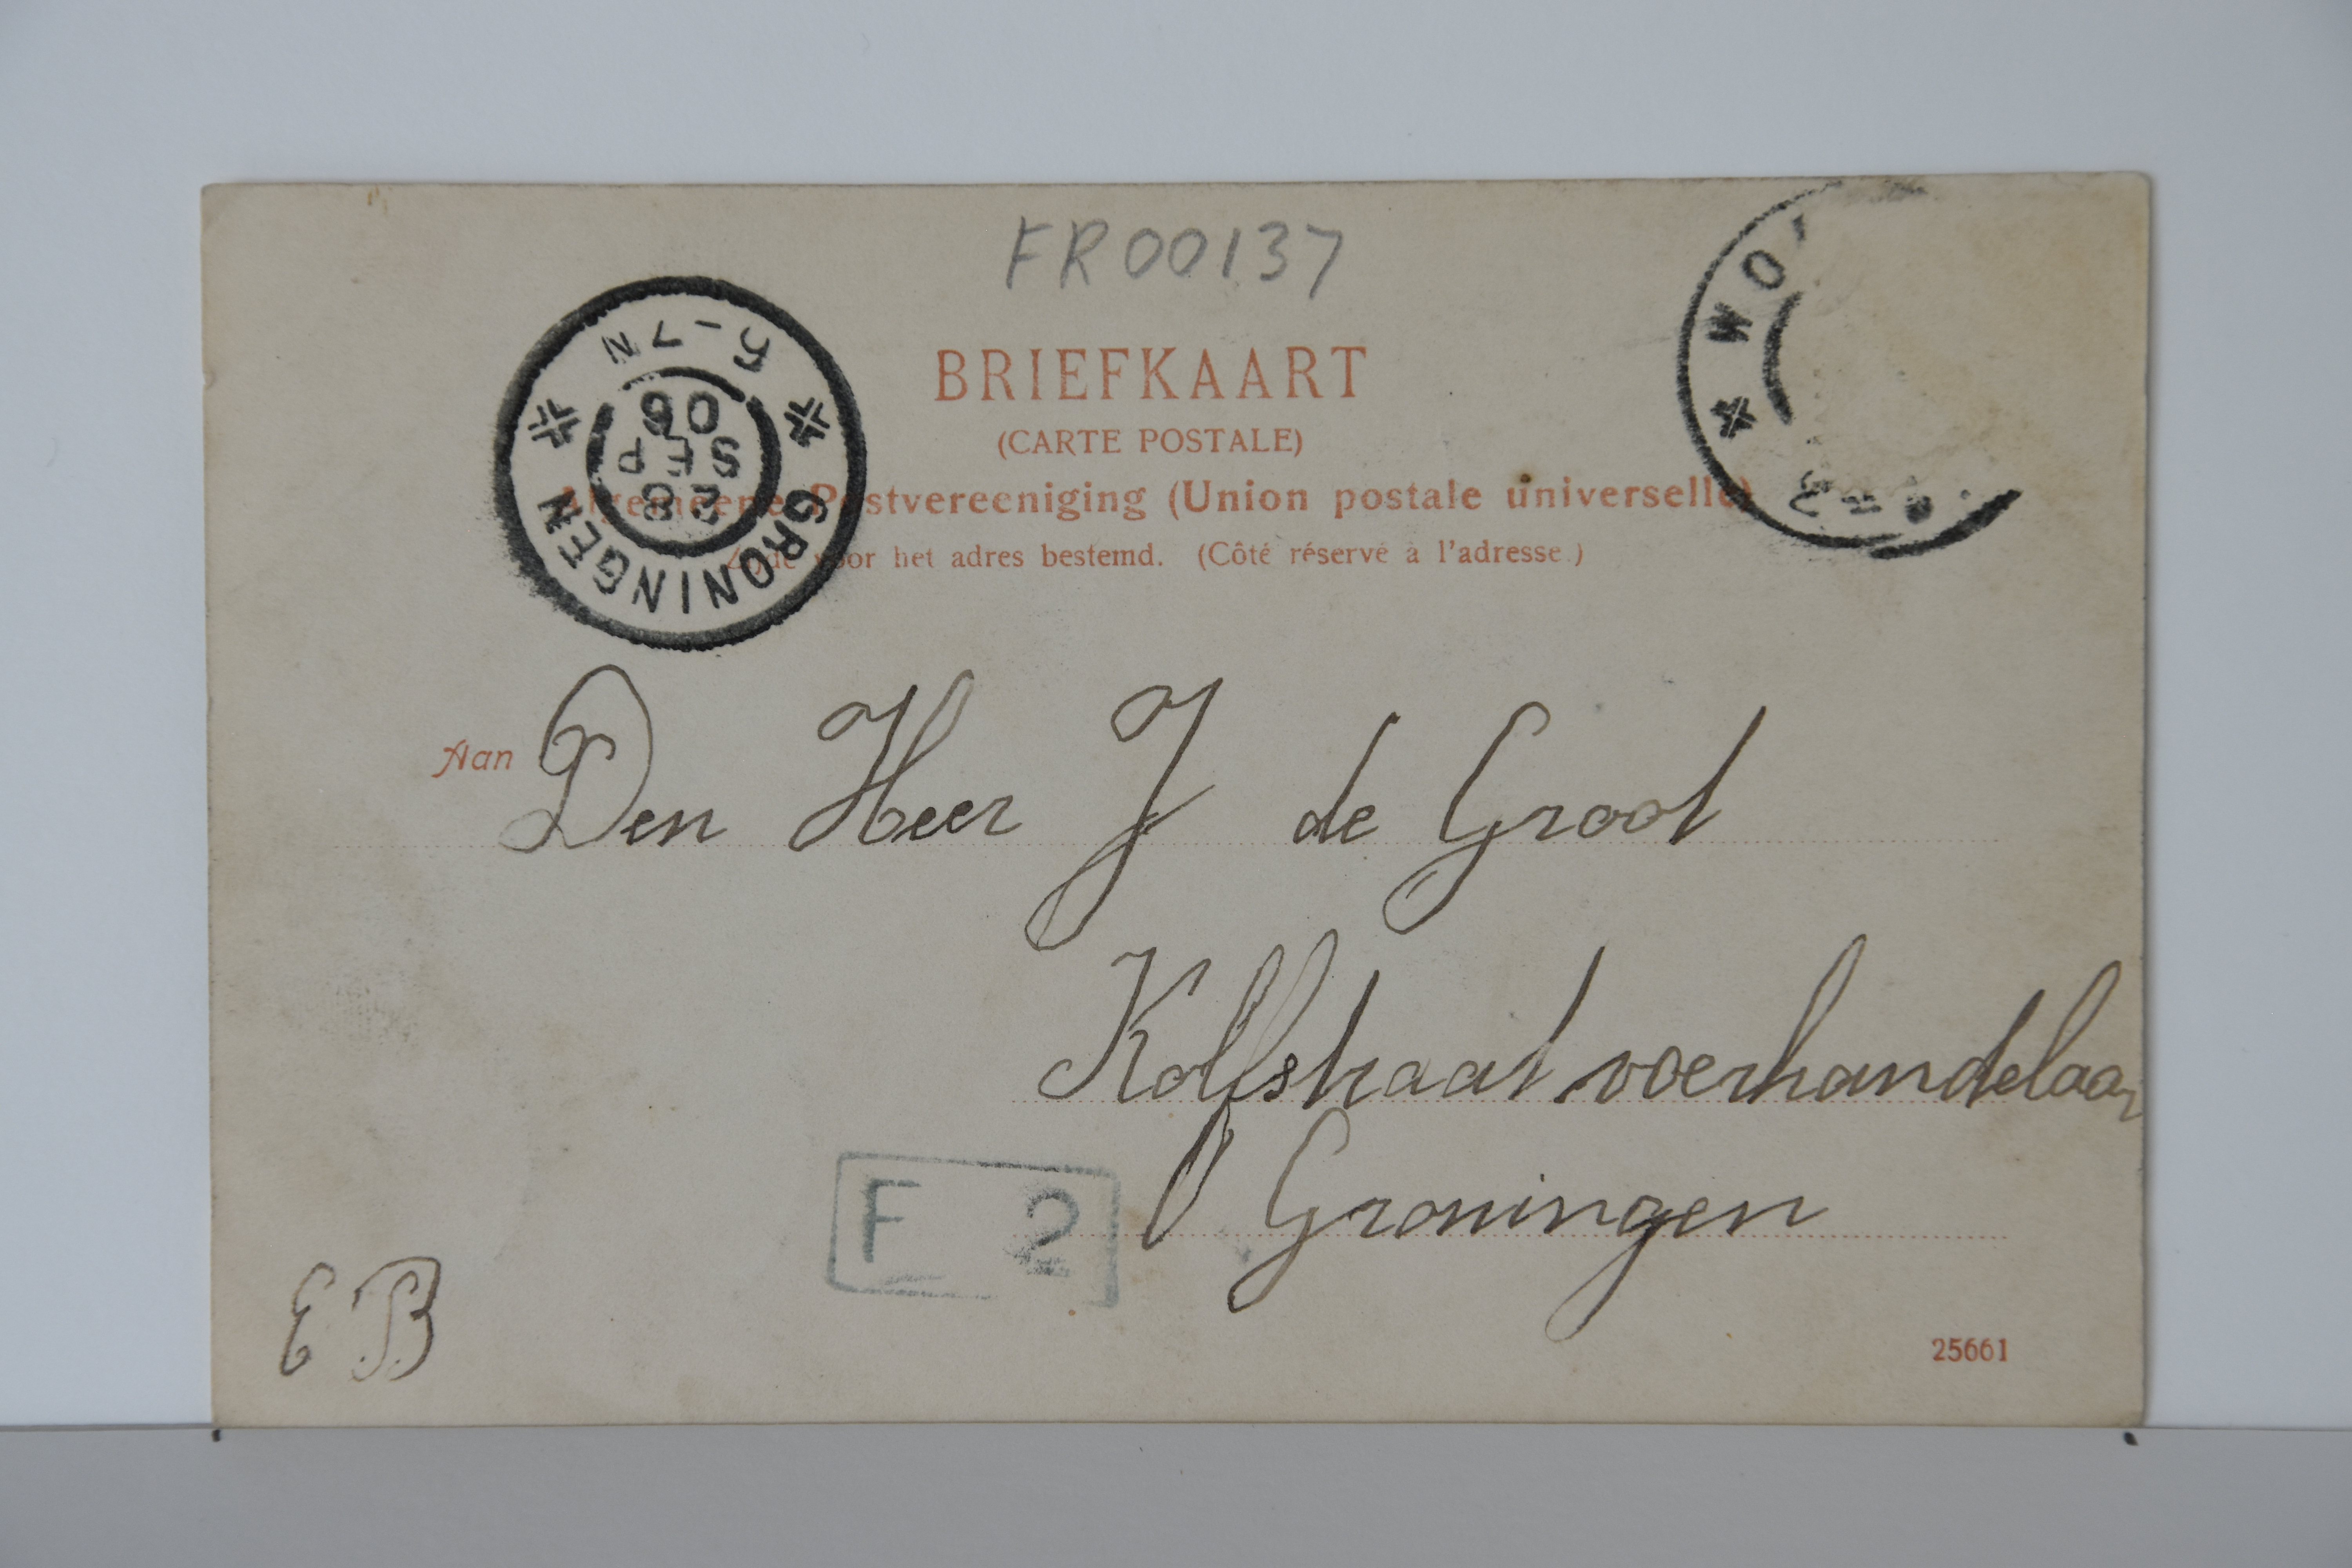 FR00137
BRIEFKAART
(CARTE POSTALE)
Algemeene Postvereeniging (Union postale universelle)
Zijde voor het adres bestemd. (Côté réservé à l'adresse.)
GRONINGEN
28
SEP
06
5-7N
WO
Aan Den Heer J de Groot
voerhandelaar
Groningen
F 2
E B
25661